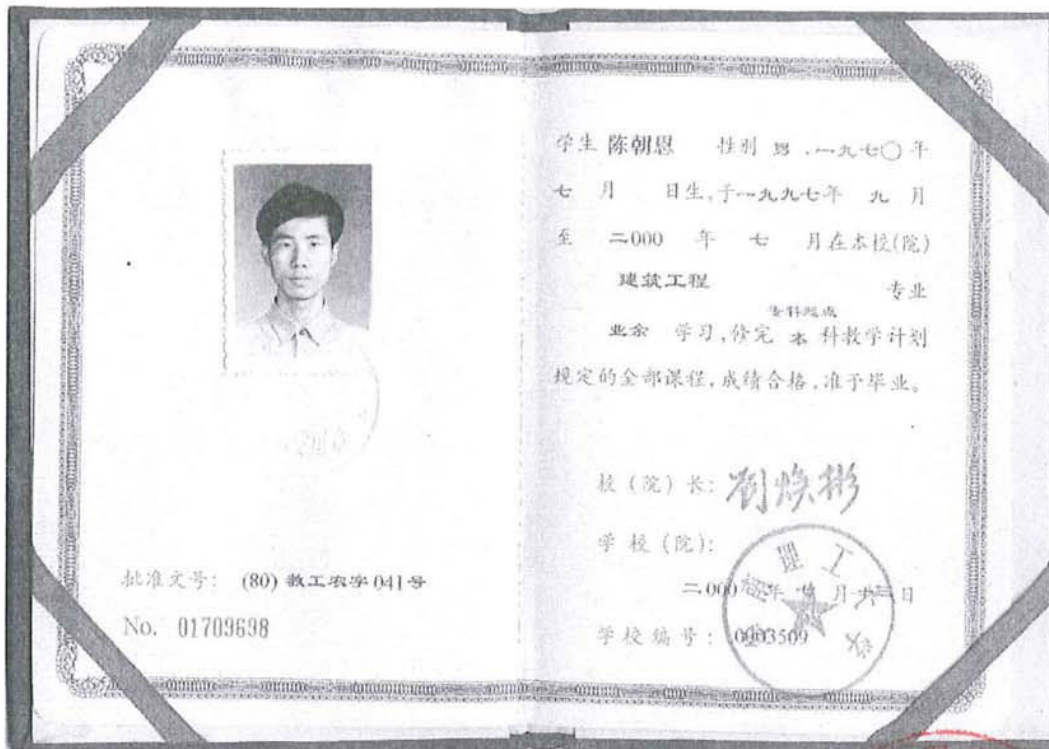 批准文号: (80) 教工农字 041号
No. 01709698
学生 陈朝恩 性别 男 ,一九七〇年
七 月 日生,于一九九七年 九 月
至 二000 年 七 月在本校(院)
建筑工程 专业
专科起点
业余 学习,修完 本 科教学计划
规定的全部课程,成绩合格,准予毕业。
校 (院) 长: 刘焕彬
学 校 (院):
理工大
二000 年 月 日
学校编号: 0003509